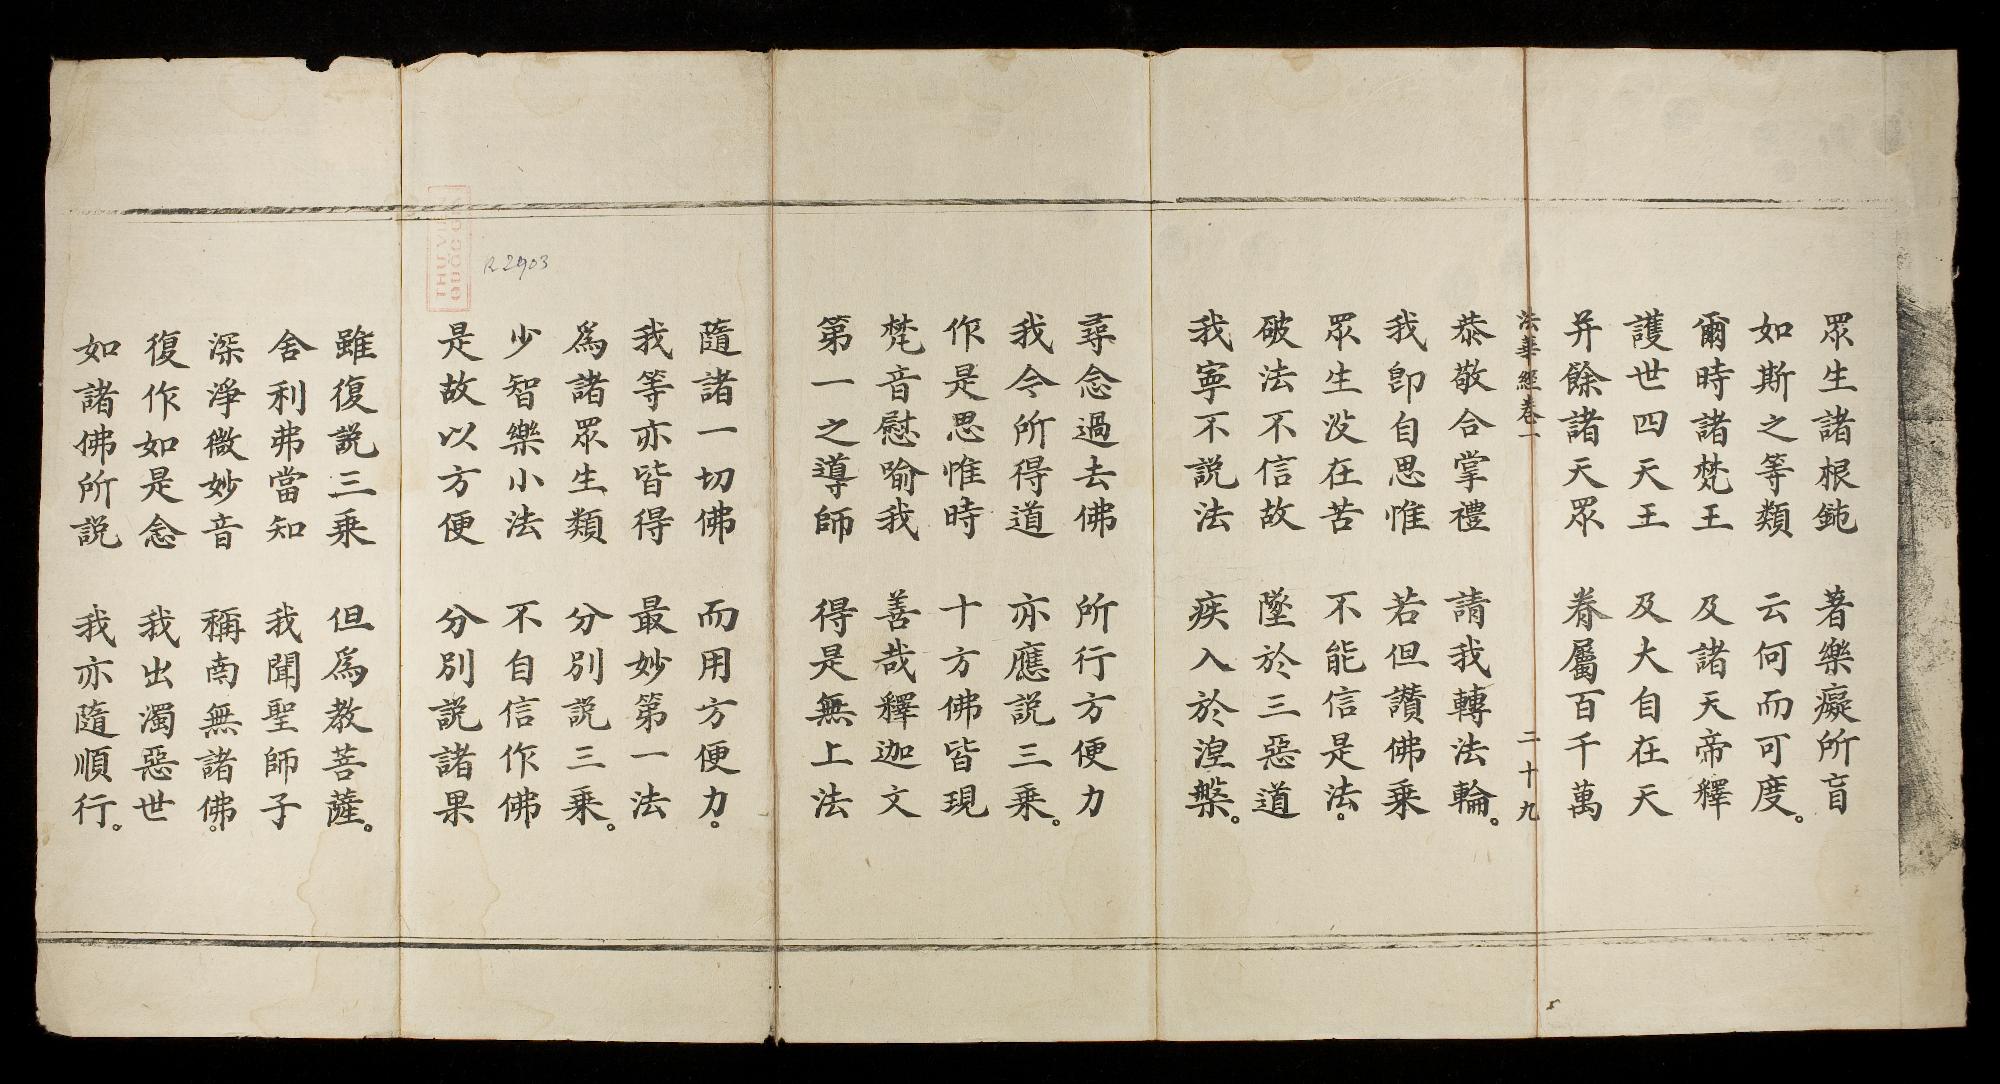 眾生諸根鈍　著樂癡所盲
如斯之等類　云何而可度。
爾時諸梵王　及諸天帝釋
護世四天王　及大自在天
并餘諸天眾　眷屬百千萬
法華經卷一　二十九
恭敬合掌禮　請我轉法輪。
我卽自思惟　若但讚佛乘
眾生没在苦　不能信是法。
破法不信故　墜於三惡道
我寧不説法　疾入於涅槃。
尋念過去佛　所行方便力
我今所得道　亦應説三乘。
作是思惟時　十方佛皆現
梵音慰喻我　善哉釋迦文
第一之導師　得是無上法
隨諸一切佛　而用方便力。
我等亦皆得　最妙第一法
爲諸眾生類　分別説三乘。
少智樂小法　不自信作佛
是故以方便　分別説諸果
R 2903
雖復説三乘　但爲教菩薩。
舍利弗當知　我聞聖師子
深淨微妙音　稱南無諸佛。
復作如是念　我出濁惡世
如諸佛所説　我亦隨順行。